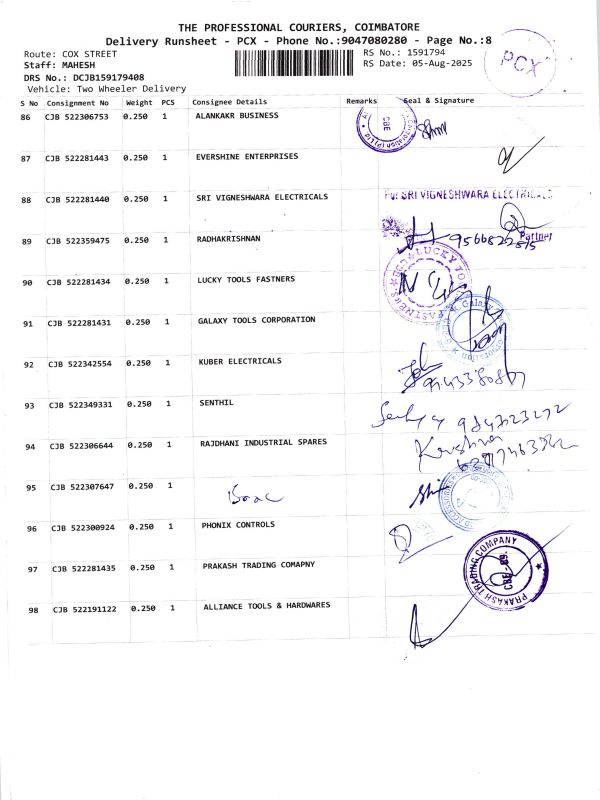 THE PROFESSIONAL COURIERS, COIMBATORE
Delivery Runsheet - PCX - Phone No.:9047080280 - Page No.:8
Route: COX STREET
RS No.: 1591794
Staff: MAHESH
RS Date: 05-Aug-2025
PCX
DRS No.: DCJB159179408
Vehicle: Two Wheeler Delivery
S No Consignment No Weight PCS Consignee Details Remarks Seal & Signature
86 CJB 522306753 0.250 1 ALANKAKR BUSINESS
CBE
87 CJB 522281443 0.250 1 EVERSHINE ENTERPRISES
88 CJB 522281440 0.250 1 SRI VIGNESHWARA ELECTRICALS
For SRI VIGNESHWARA ELECTRICALS
Partner
89 CJB 522359475 0.250 1 RADHAKRISHNAN
90 CJB 522281434 0.250 1 LUCKY TOOLS FASTNERS
91 CJB 522281431 0.250 1 GALAXY TOOLS CORPORATION
92 CJB 522342554 0.250 1 KUBER ELECTRICALS
93 CJB 522349331 0.250 1 SENTHIL
94 CJB 522306644 0.250 1 RAJDHANI INDUSTRIAL SPARES
Krishna
95 CJB 522307647 0.250 1
Isaac
96 CJB 522300924 0.250 1 PHONIX CONTROLS
97 CJB 522281435 0.250 1 PRAKASH TRADING COMAPNY
PRAKASH TRADING COMPANY
98 CJB 522191122 0.250 1 ALLIANCE TOOLS & HARDWARES